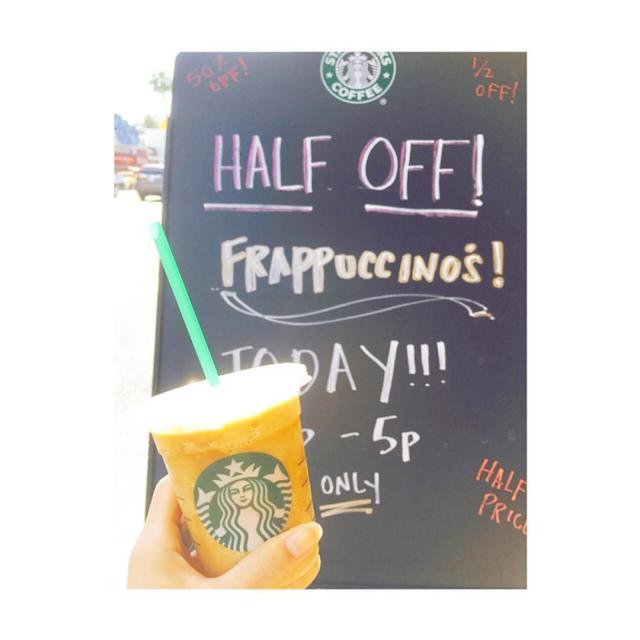 50% OFF!
STARBUCKS COFFEE ®
1/2 OFF!
HALF OFF!
FRAPPUCCINO'S!
TODAY!!!
P - 5P
ONLY
HALF
PRICE